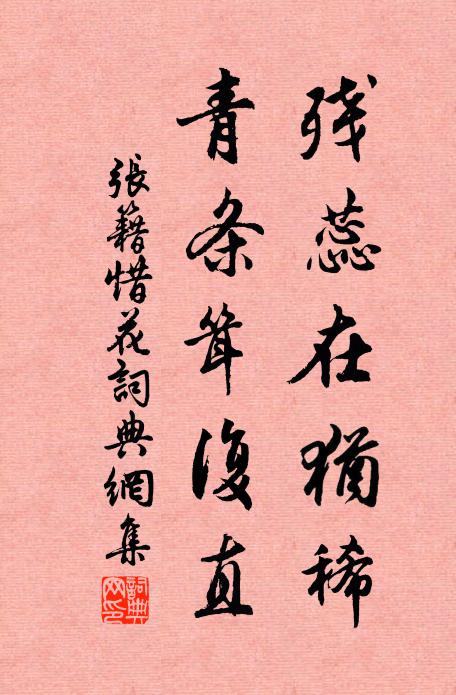 残蕊在猶稀
青条耸復直
張籍惜花詞典網集
詞典网印